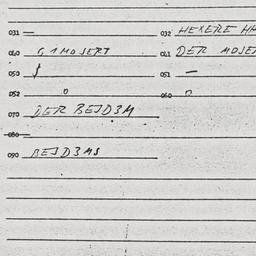 031 — 032 HEXERE HH
040 G1MOSERT 041 DER MOSER
050 051 —
052 0 060 0
070 DER BEJD3M
080
090 BEJD3MS